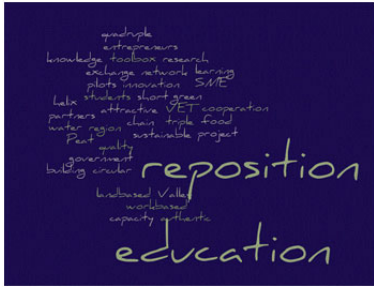 quadruple
entrepreneurs
knowledge toolbox research
exchange network learning
pilots innovation SME
helix students short green
partners attractive VET cooperation
water region chain triple food
Peat sustainable project
quality
government
building circular reposition
landbased Valley
workbased
capacity authentic
education